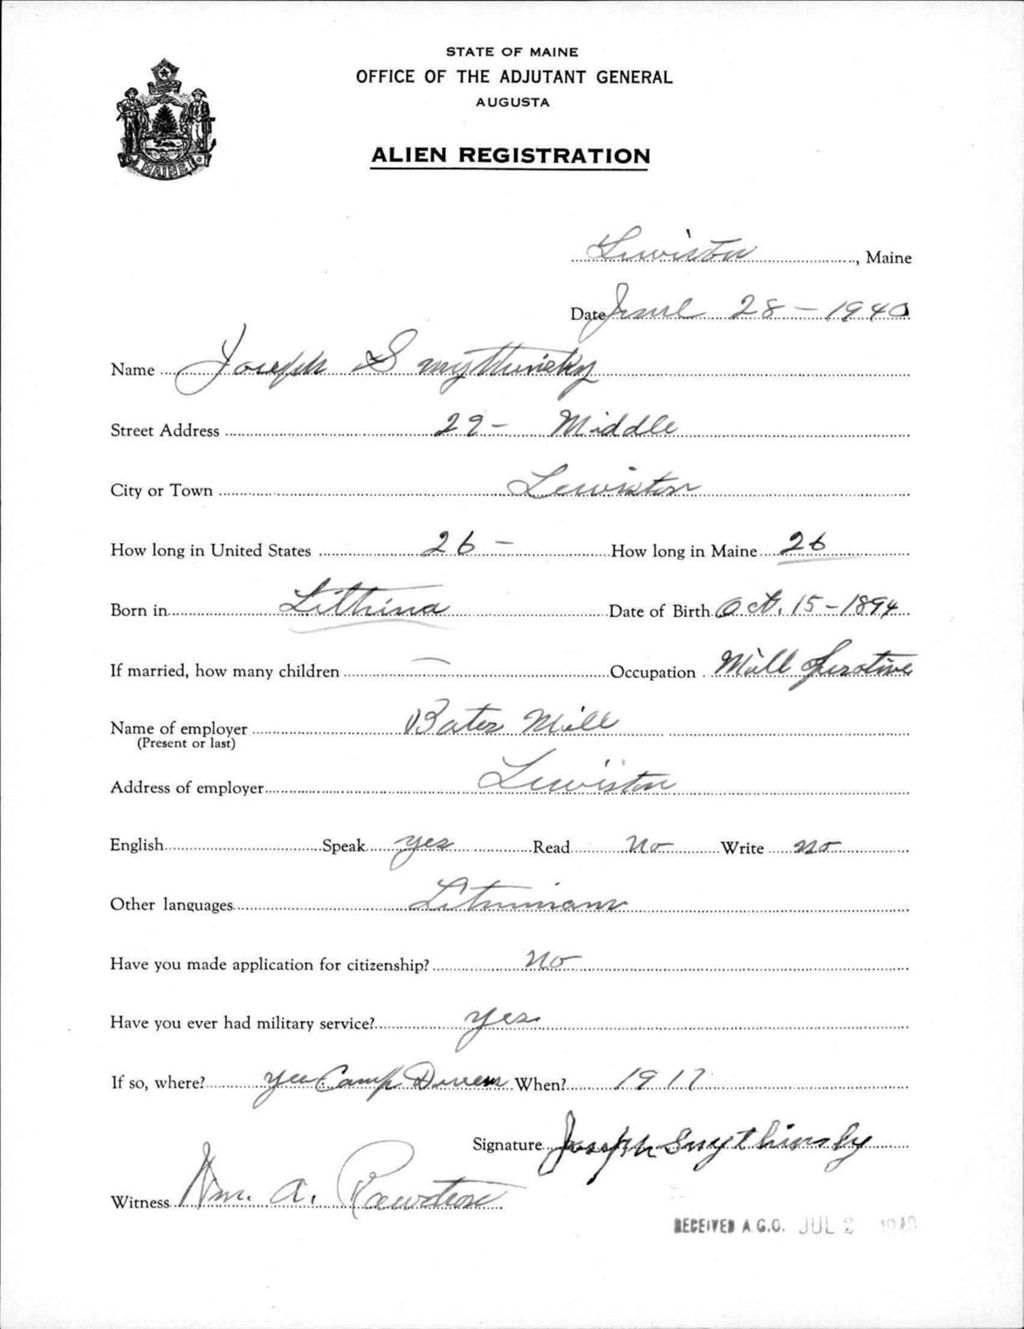 STATE OF MAINE
OFFICE OF THE ADJUTANT GENERAL
AUGUSTA
ALIEN REGISTRATION
MAINE
Lewiston, Maine
Date June 28-1940
Name Joseph Smythinsky
Street Address 29- Middle
City or Town Lewiston
How long in United States 26 - How long in Maine 26
Born in Lithina Date of Birth Oct. 15-1894
If married, how many children — Occupation Mill Operative
Name of employer Bates Mill
(Present or last)
Address of employer Lewiston
English Speak yes Read No Write no
Other languages
Have you made application for citizenship? No
Have you ever had military service? yes
If so, where? yes Camp Devens When? 1917
Signature Joseph Smythinsky
Witness Wm. A. Rawstron
RECEIVED A.G.O. JUL 2 1940